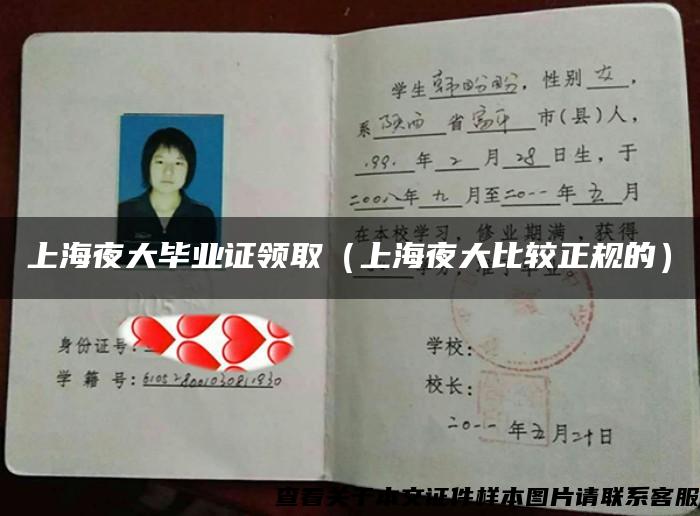 学生韩盼盼，性别女，
系陕西省富平市(县)人，
.991.年2月28日生，于
二00八年九月至二0一一年五月
在本校学习，修业期满，获得
上海夜大毕业证领取（上海夜大比较正规的）
身份证号:
学籍号:
学校:
校长:
二0一一年五月二十日
查看关于本文证件样本图片请联系客服